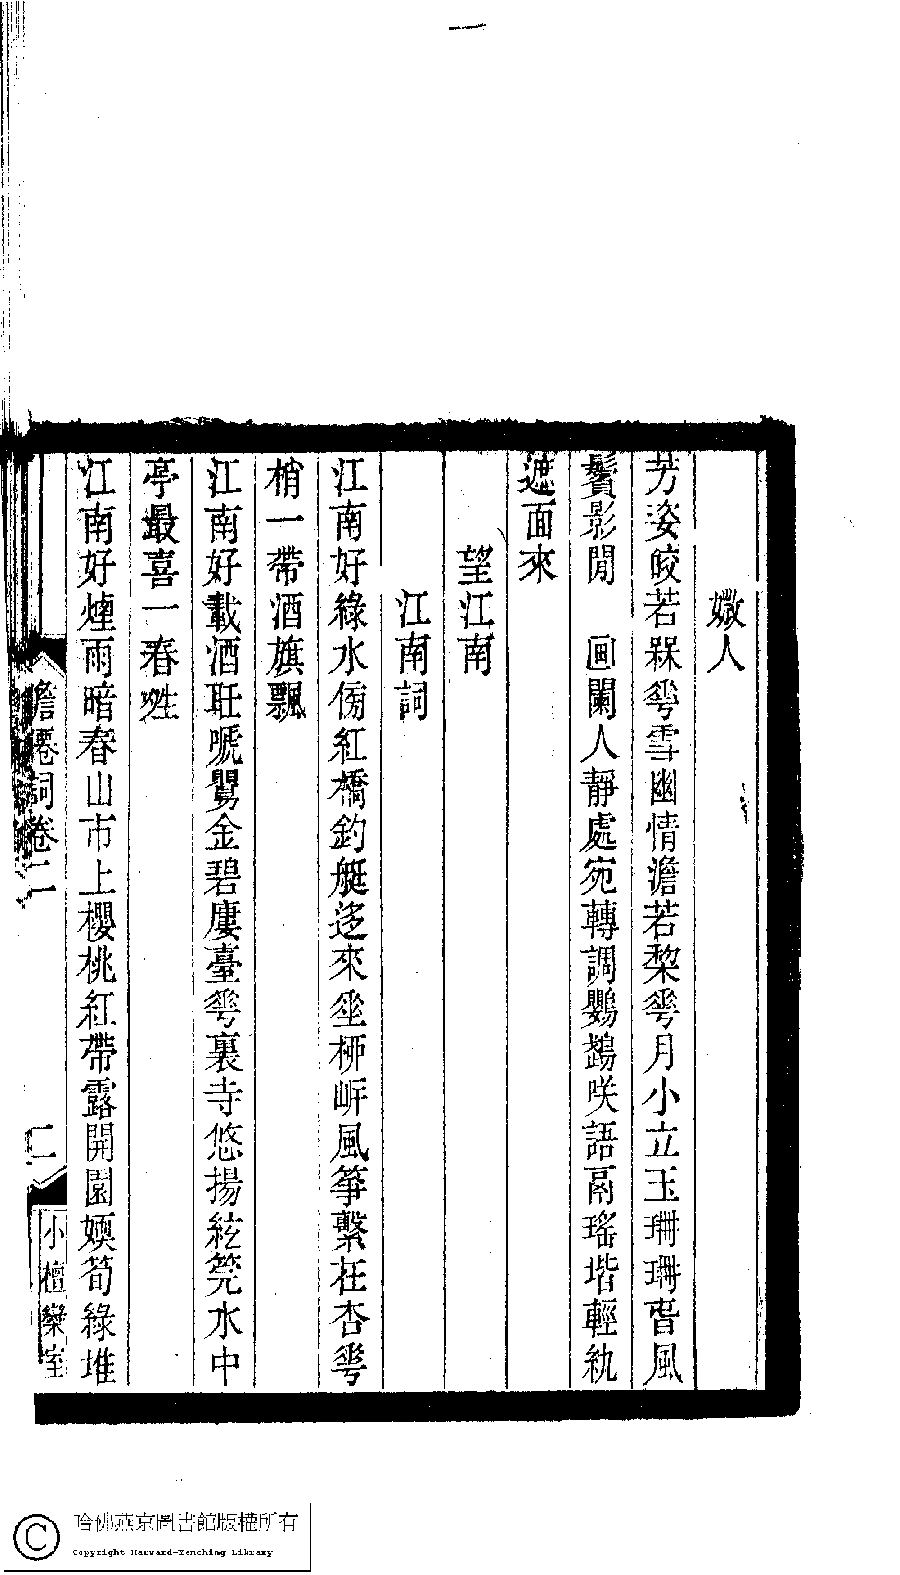 媺人
芳姿皎若槑蕐雪幽情澹若棃蕐月小立玉珊珊㫺風
鬢影閒　画闌人靜處宛轉調鸚鵡咲語鬲瑤堦輕紈
遮面來
望江南
江南詞
江南好綠水傍紅橋釣艇迻來坐桺岍風箏繫在杏蕐
梢一帶酒旗飄
江南好載酒聽嗁鸎金碧廔臺蕐裏寺悠揚絃筦水中
亭最喜一春甡
江南好煙雨暗春山市上櫻桃紅帶露開園媆筍綠堆
澹僊詞卷二
二
小檀欒室
哈佛燕京圖書館版權所有
Copyright Harvard-Yenching Library